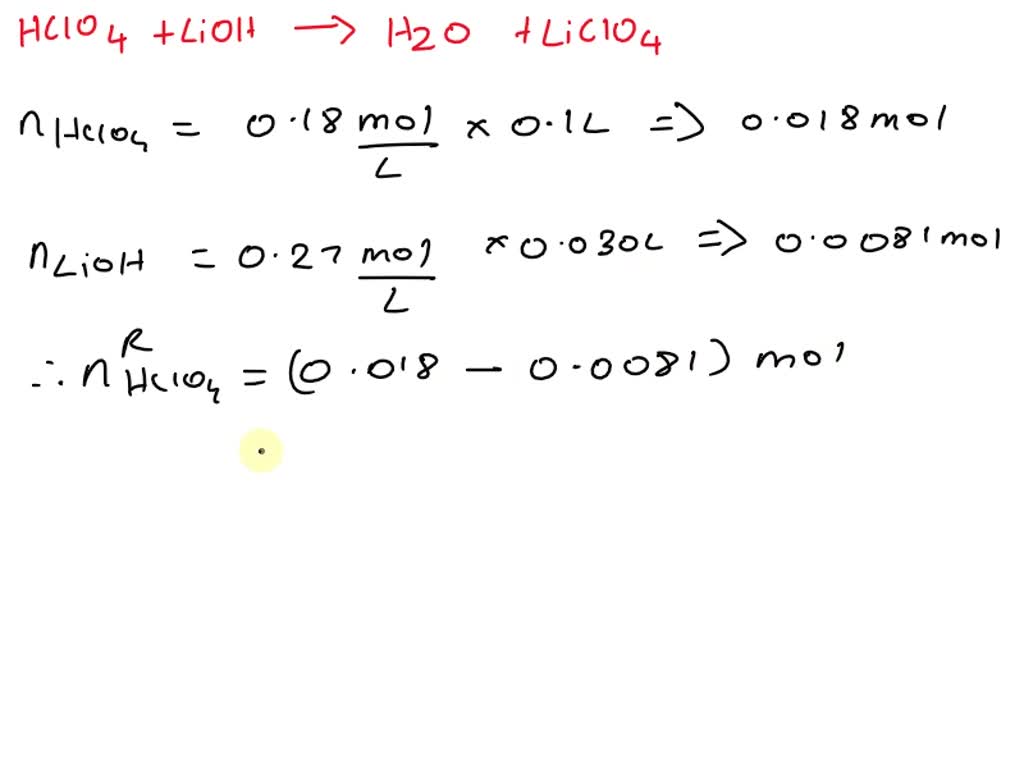 HClO4 + LiOH → H2O + LiClO4
nHClO4 = 0.18 mol/L × 0.1L => 0.018 mol
nLiOH = 0.27 mol/L × 0.030L => 0.0081 mol
∴ n^R HClO4 = (0.018 - 0.0081) mol